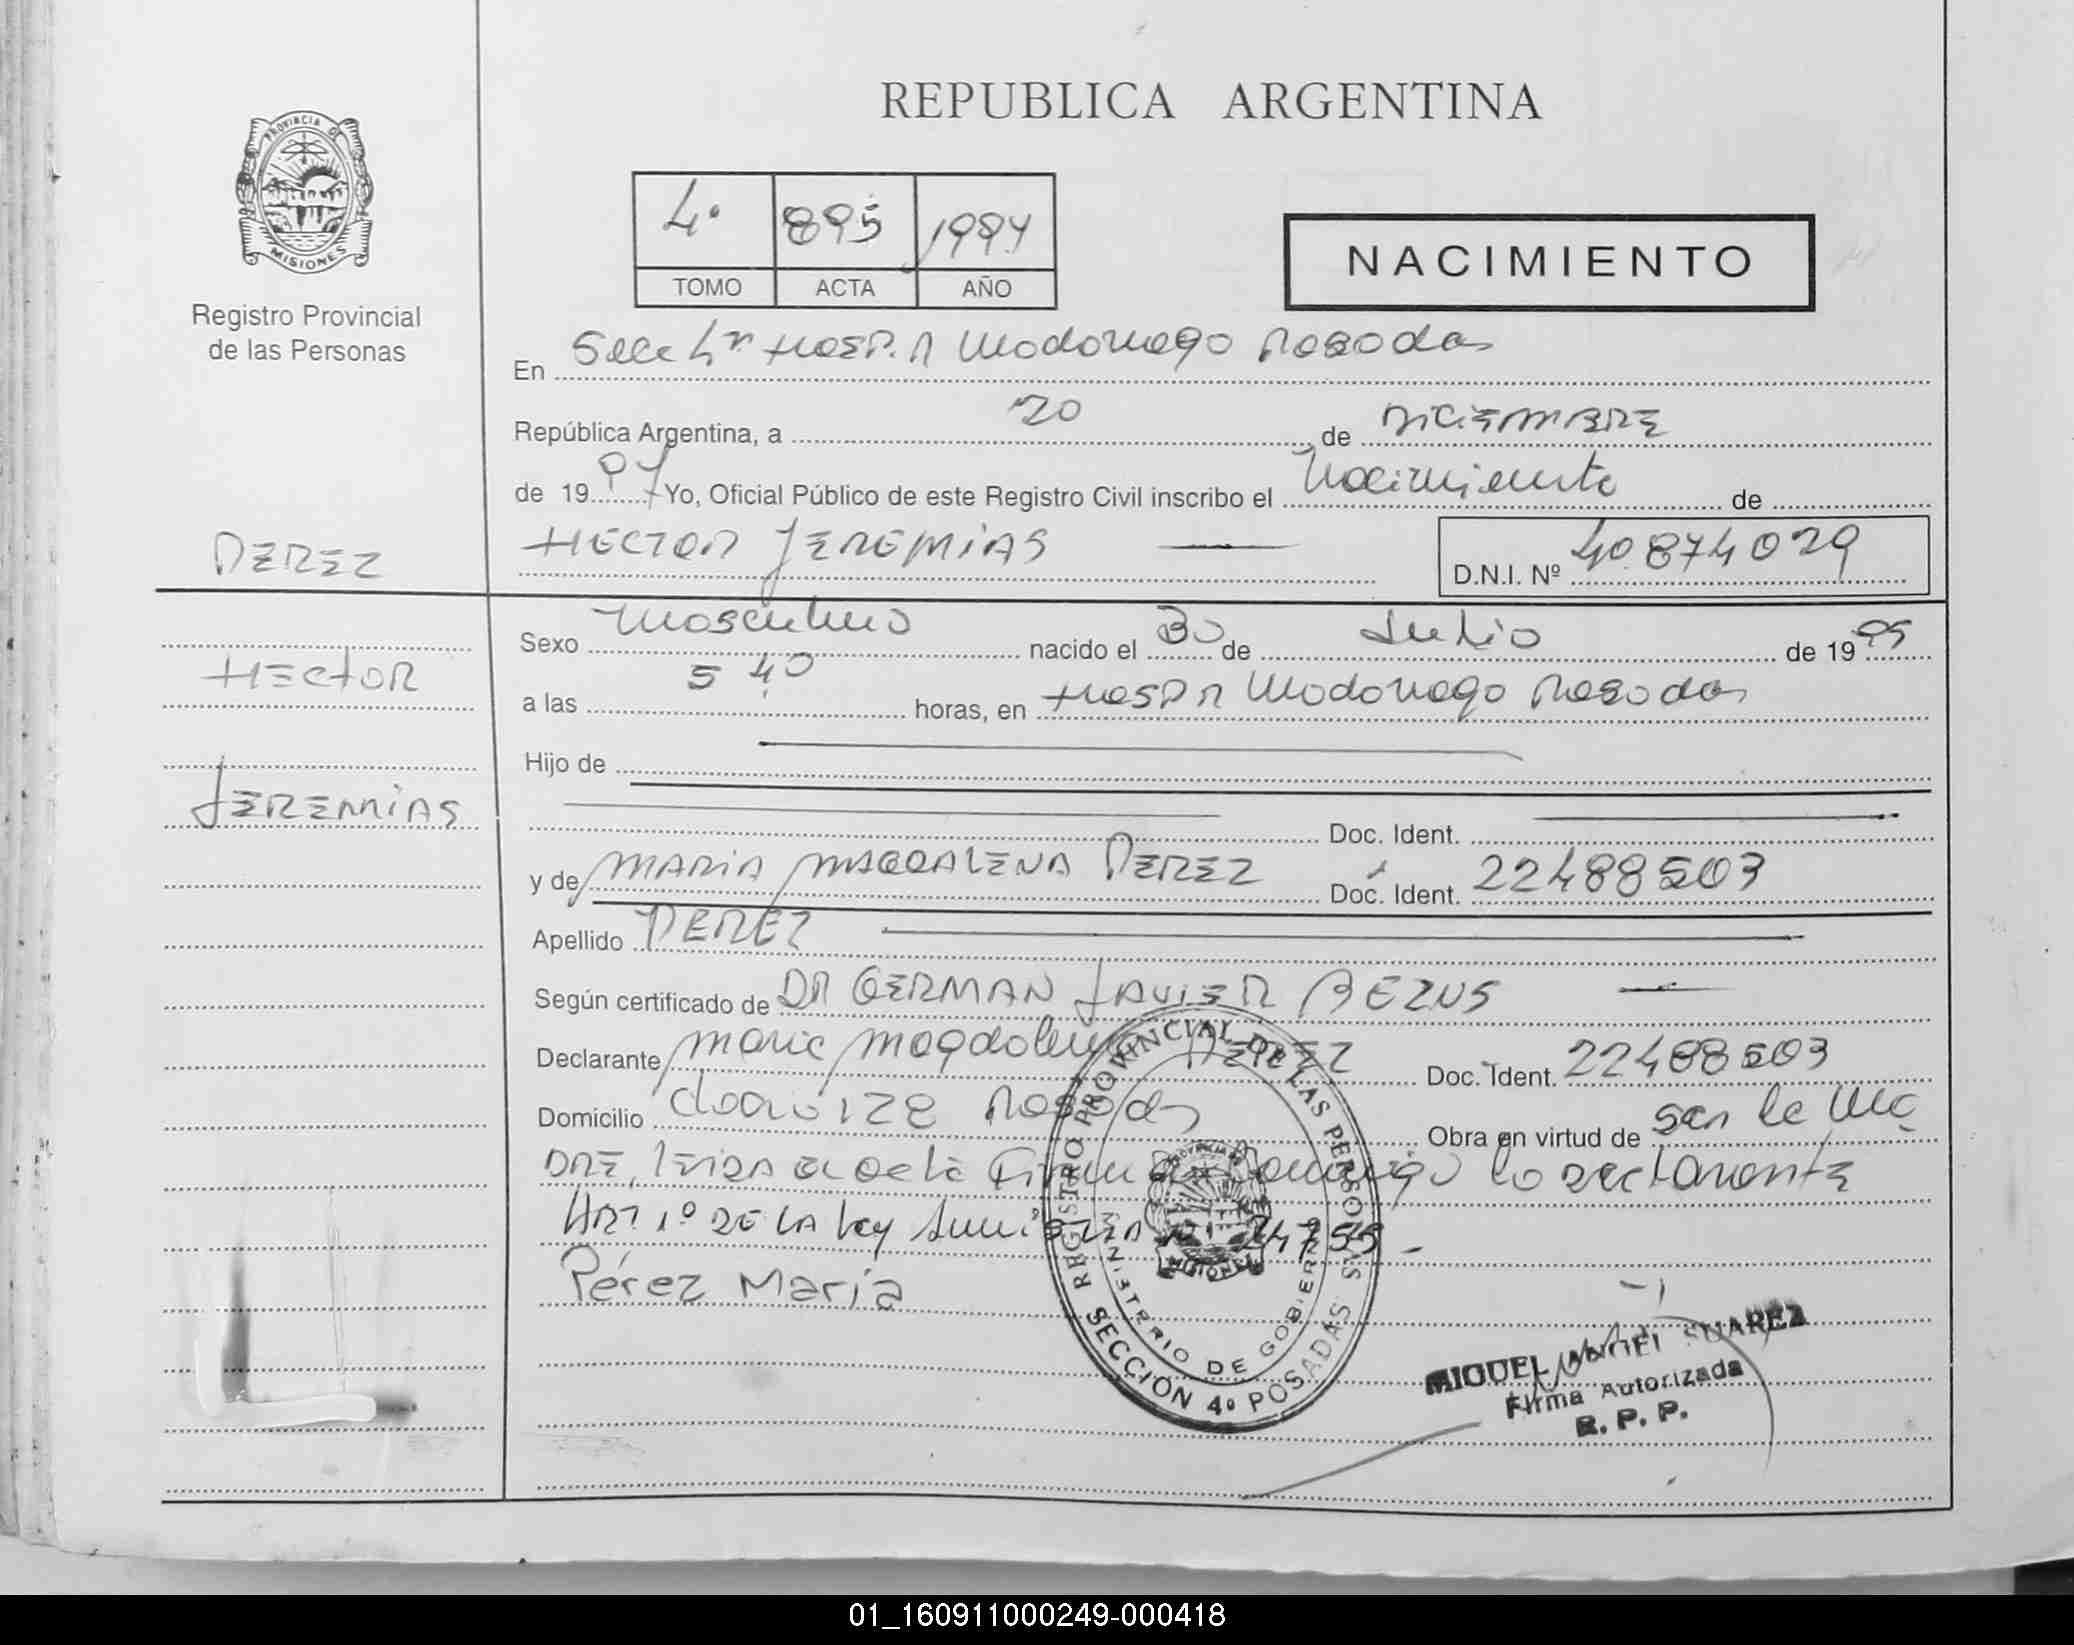 REPUBLICA ARGENTINA
PROVINCIA DE
MISIONES
Registro Provincial
de las Personas
4º 895 1997
TOMO ACTA AÑO
NACIMIENTO
En Secc 4ª HOSP. R Madariaga Posadas
República Argentina, a 20 de DICIEMBRE
de 1997 Yo, Oficial Público de este Registro Civil inscribo el Nacimiento de
PEREZ
HECTOR JEREMIAS
D.N.I. Nº 40.874029
Hector
JEREMIAS
Sexo Masculino nacido el 30 de Julio de 1995
a las 5 40 horas, en HOSP R Madariaga Posadas
Hijo de
Doc. Ident.
y de MARIA MAGDALENA PEREZ Doc. Ident. 22488503
Apellido PEREZ
Según certificado de DR GERMAN JAVIER BEZUS
Declarante Maria Magdalena PEREZ Doc. Ident. 22488503
Domicilio 128 Posadas Obra en virtud de ser la Ma
DRE, el acta Firma conmigo la declarante
ART 1º DE LA Ley 24755
Pérez María
REGISTRO PROVINCIAL DE LAS PERSONAS
MINISTERIO DE GOBIERNO
MISIONES
SECCIÓN 4º POSADAS
MIGUEL SUAREZ
Firma Autorizada
R. P. P.
01_160911000249-000418